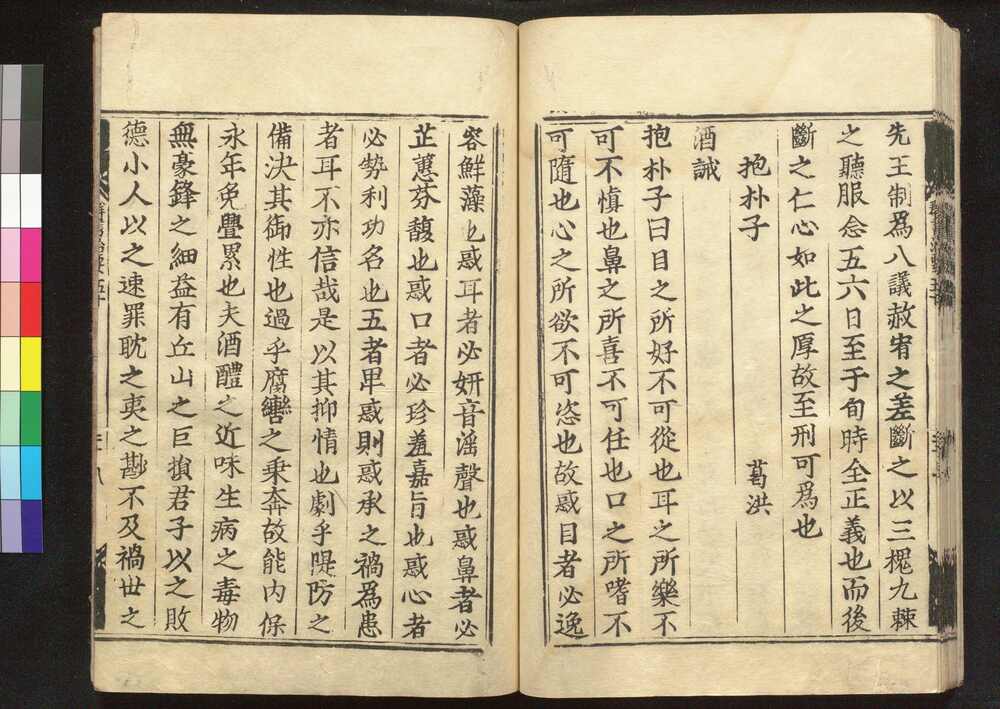 先王制爲八議赦宥之差斷之以三槐九棘
之聽服念五六日至于旬時全正義也而後
斷之仁心如此之厚故至刑可爲也
抱朴子 葛洪
酒誡
抱朴子曰目之所好不可從也耳之所樂不
可不愼也鼻之所喜不可任也口之所嗜不
可隨也心之所欲不可恣也故惑目者必逸
容鮮藻也惑耳者必妍音滛聲也惑鼻者必
芷蕙芬馥也惑口者必珍羞嘉旨也惑心者
必勢利功名也五者畢惑則惑承之禍爲患
者耳不亦信哉是以其抑情也劇乎隄防之
備决其御性也過乎腐轡之乗奔故能内保
永年免舋累也夫酒醴之近味生病之毒物
無豪鋒之細益有丘山之巨損君子以之敗
德小人以之速罪耽之
之
不及禍世之
群書治要五十